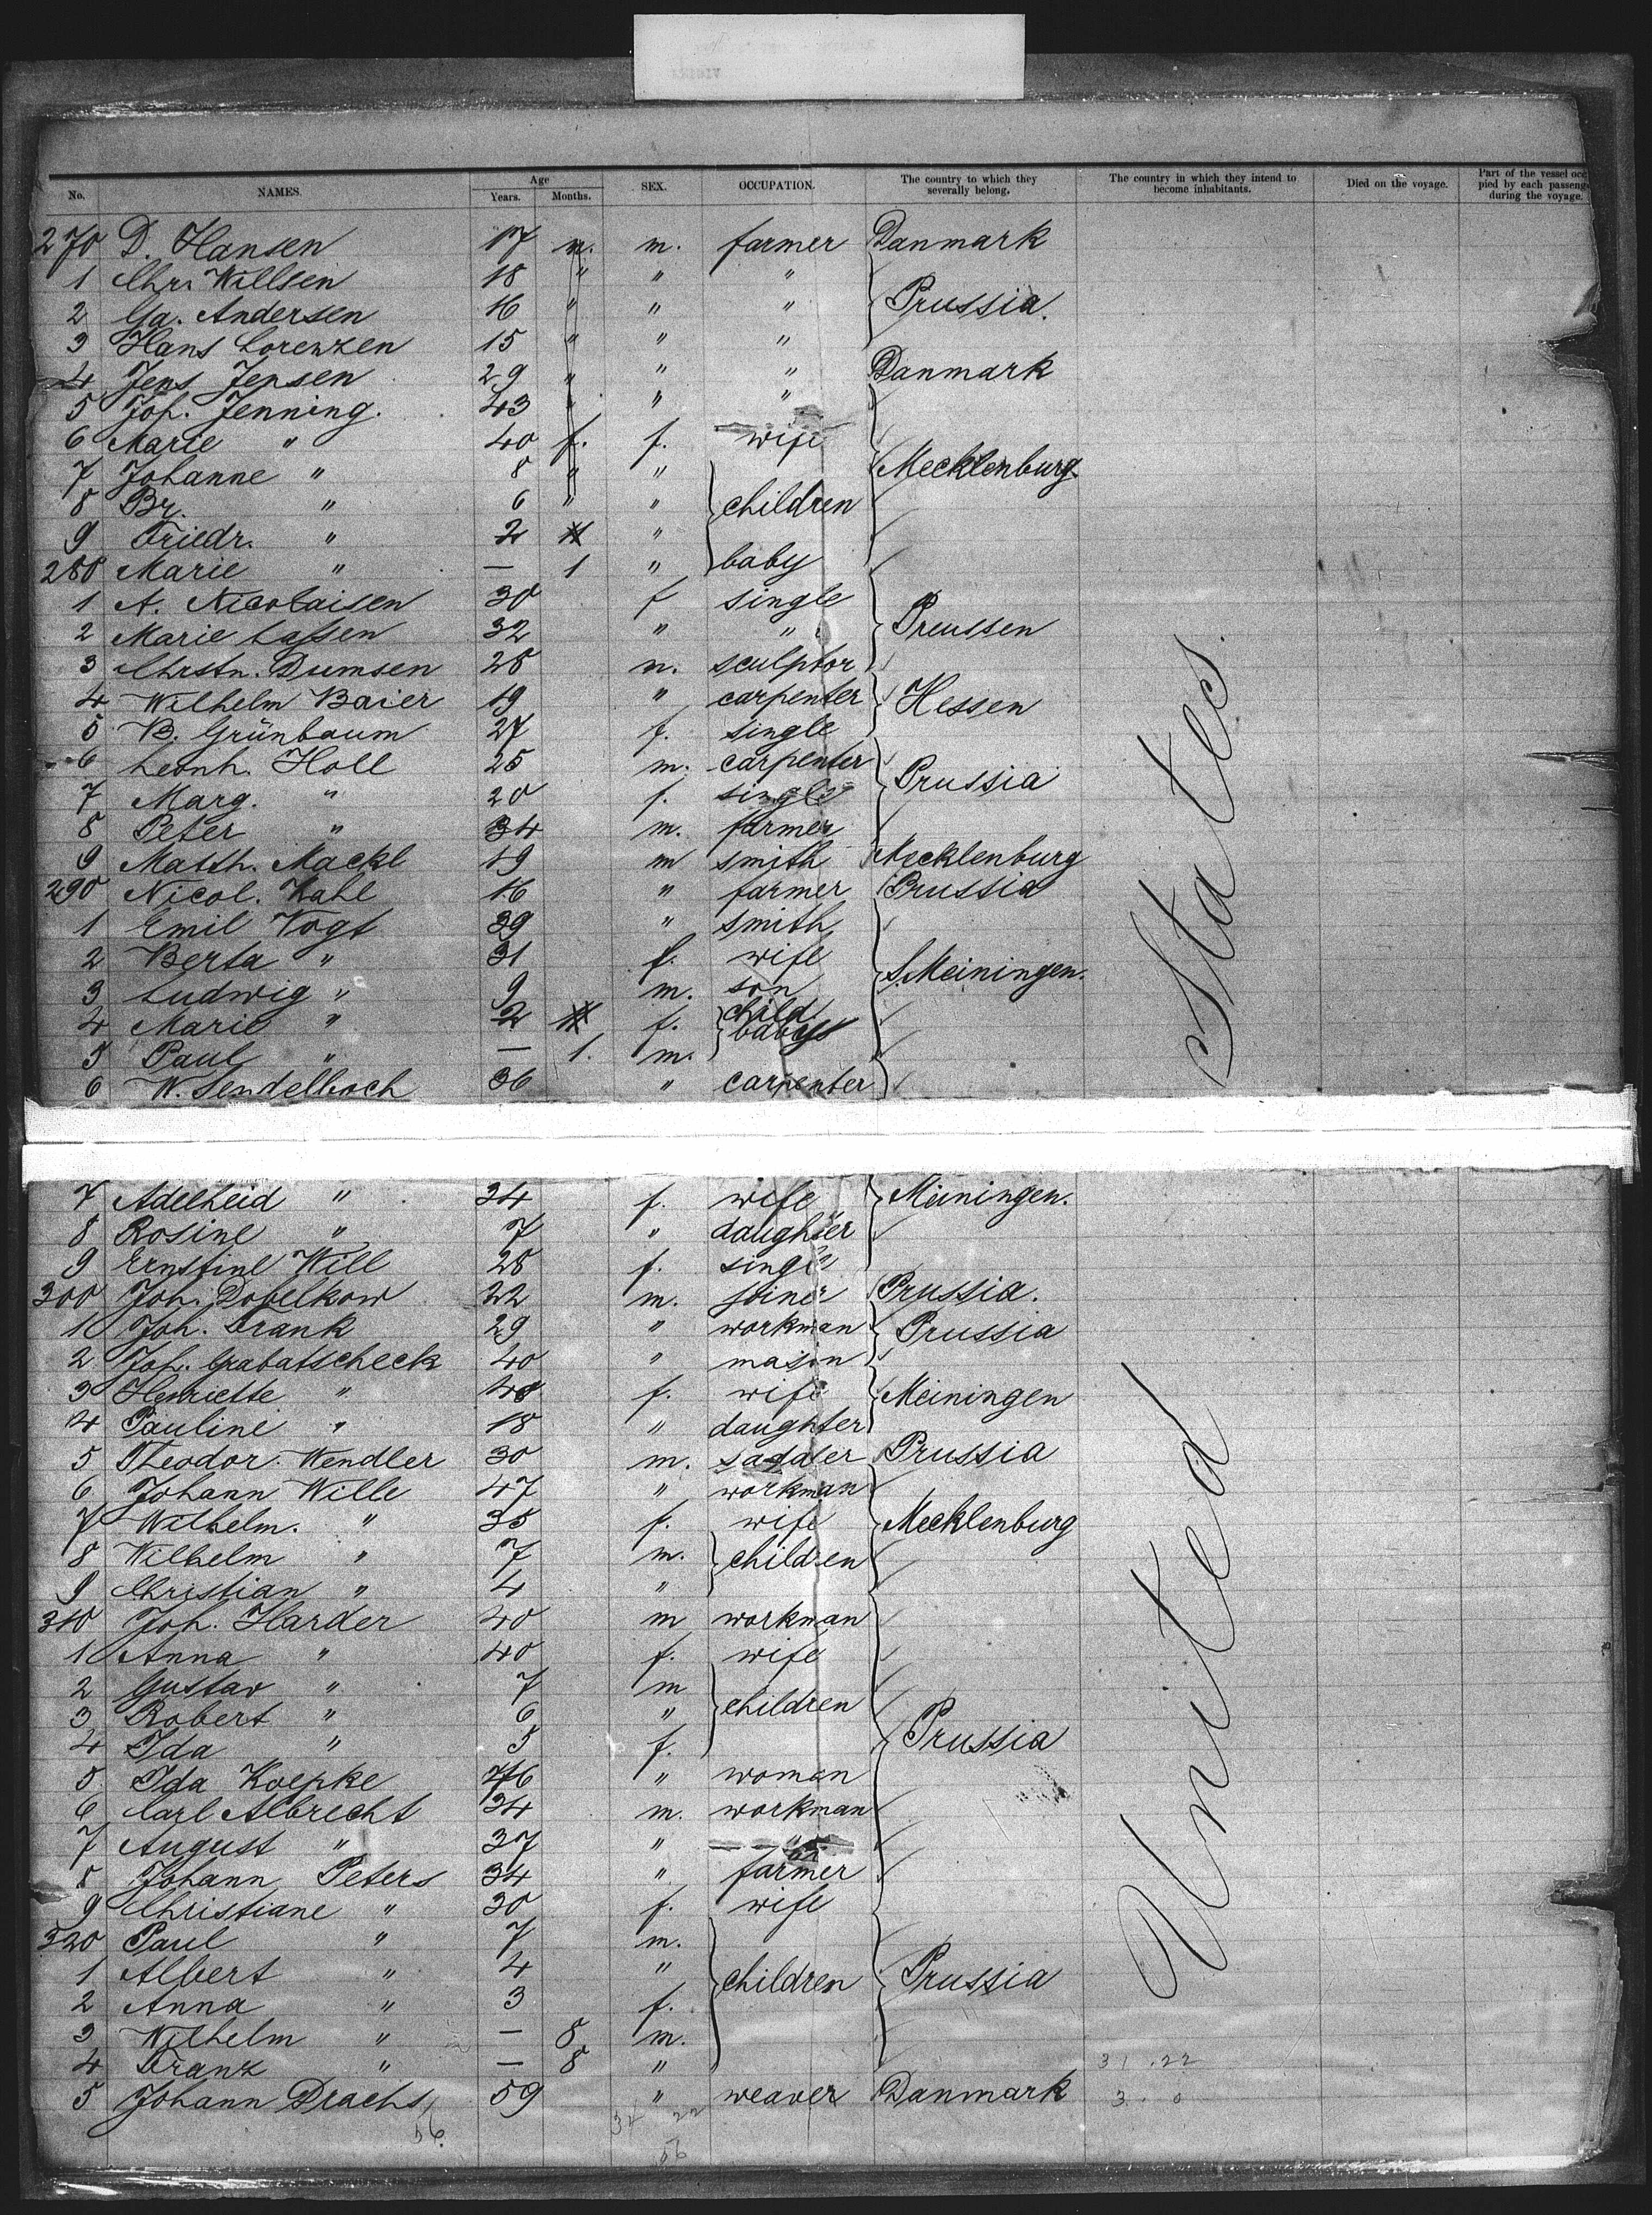 No. NAMES. Age Years. Months. SEX. OCCUPATION. The country to which they severally belong. The country in which they intend to become inhabitants. Died on the voyage. Part of the vessel occ pied by each passeng during the voyage.
270 D. Hansen 17 m. m. farmer Danmark
1 Chr. Willsen 18 " " "
2 Ga. Andersen 16 " " " Prussia.
3 Hans Lorenzen 15 " " "
4 Jens Jensen 29 " " " Danmark
5 Joh. Jenning. 43 " " "
6 Marie " 40 f. f. wife
7 Johanne " 8 " " Mecklenburg.
8 Br. " 6 " " children
9 Friedr. " 2 "
280 Marie " — 1 " baby
1 A. Nicolaisen 30 f single
2 Marie Lassen 32 " " Preussen
3 Chrstn. Dumsen 28 m. sculptor
4 Wilhelm Baier 19 " carpenter Hessen
5 B. Grünbaum 27 f. single
6 Leonh. Holl 25 m. carpenter
7 Marg. " 20 f. single Prussia
8 Peter " 34 m. farmer
9 Matth. Mackl 19 m smith Mecklenburg
290 Nicol. Kahl 16 " farmer Prussia
1 Emil Vogt 39 " smith
2 Berta " 31 f. wife
3 Ludwig " 9 m. son S. Meiningen.
4 Marie " 2 f. child babys
5 Paul " — 1. m.
6 W. Sendelbach 36 " carpenter
7 Adelheid " 34 f. wife Meiningen.
8 Rosine " 7 " daughter
9 Ernstine Will 28 f. single
300 Joh. Dobelkow 22 m. joiner Prussia.
1 Joh. Frank 29 " workman Prussia
2 Joh. Grabatscheck 40 " mason
3 Henriette " 48 f. wife Meiningen
4 Pauline " 18 " daughter
5 Theodor Wendler 30 m. saddler Prussia
6 Johann Wille 47 " workman
7 Wilhelm. " 35 f. wife Mecklenburg
8 Wilhelm " 7 m. children
9 Christian " 4 "
310 Joh. Harder 40 m workman
1 Anna " 40 f. wife
2 Gustav " 7 m
3 Robert " 6 " children
4 Ida " 5 f. Prussia
5 Ida Koepke 46 " woman
6 Carl Albrecht 34 m. workman
7 August " 37 " "
8 Johann Peters 34 " farmer
9 Christiane " 30 f. wife
320 Paul " 7 m.
1 Albert " 4 " children Prussia
2 Anna " 3 f.
3 Wilhelm " — 8 m.
4 Franz " — 8 "
5 Johann Drachs 59 " weaver Danmark
United States.
31 . 22
3 . 0
56.
34 22
56